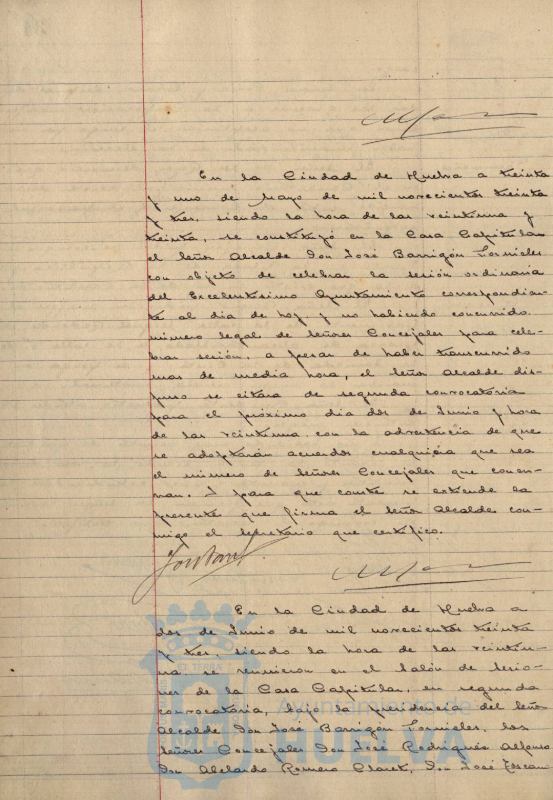 En la Ciudad de Huelva a treinta
y uno de Mayo de mil novecientos treinta
y tres, siendo la hora de las veintiuna y
treinta, se constituyó en la Casa Capitular
el Señor Alcalde Don José Barrigón Fornieles
con objeto de celebrar la sesión ordinaria
del Excelentísimo Ayuntamiento correspondien-
te al dia de hoy y no habiendo concurrido
número legal de Señores Concejales para cele-
brar sesión, a pesar de haber transcurrido
mas de media hora, el Señor Alcalde dis-
puso se citara de segunda convocatoria
para el próximo dia dos de Junio y hora
de las veintiuna con la advertencia de que
se adoptarán acuerdos cualquiera que sea
el número de Señores Concejales que concu-
rran. Y para que conste se extiende la
presente que firma el Señor Alcalde con-
migo el Secretario que certifico.
En la Ciudad de Huelva a
dos de Junio de mil novecientos treinta
y tres, siendo la hora de las veintiu-
na se reunieron en el Salón de Sesio-
nes de la Casa Capitular, en segunda
convocatoria, bajo la presidencia del Señor
Alcalde Don José Barrigón Fornieles, los
Señores Concejales Don José Rodríguez Alfonso
Don Abelardo Romero Claret, Don José
Ayuntamiento de
HUELVA